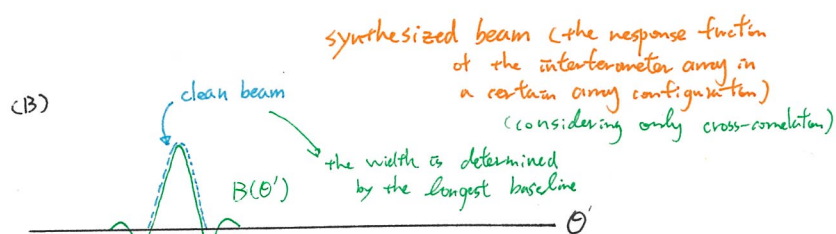 synthesized beam (the response function
of the interferometer array in
a certain array configuration)
(considering only cross-correlation)
(B)
clean beam
the width is determined
by the longest baseline
B(θ')
θ'